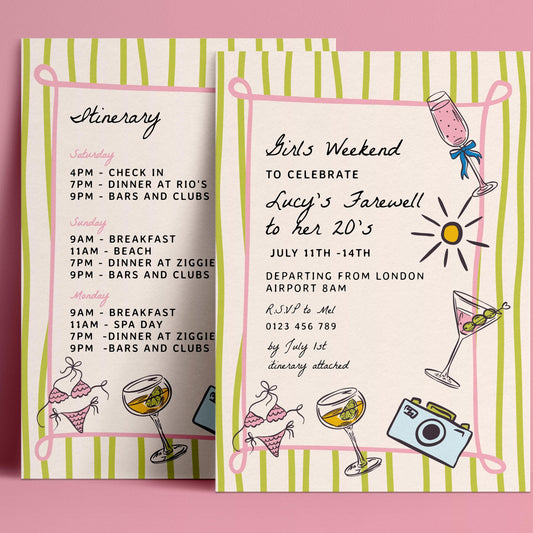 Itinerary
Saturday
4PM - CHECK IN
7PM - DINNER AT RIO'S
9PM - BARS AND CLUBS
Sunday
9AM - BREAKFAST
11AM - BEACH
7PM - DINNER AT ZIGGIE
9PM - BARS AND CLUBS
Monday
9AM - BREAKFAST
11AM - SPA DAY
7PM -DINNER AT ZIGGIE
9PM -BARS AND CLUBS
Girls Weekend
TO CELEBRATE
Lucy's Farewell
to her 20's
JULY 11TH -14TH
DEPARTING FROM LONDON
AIRPORT 8AM
R.S.V.P to Mel
0123 456 789
by July 1st
itinerary attached